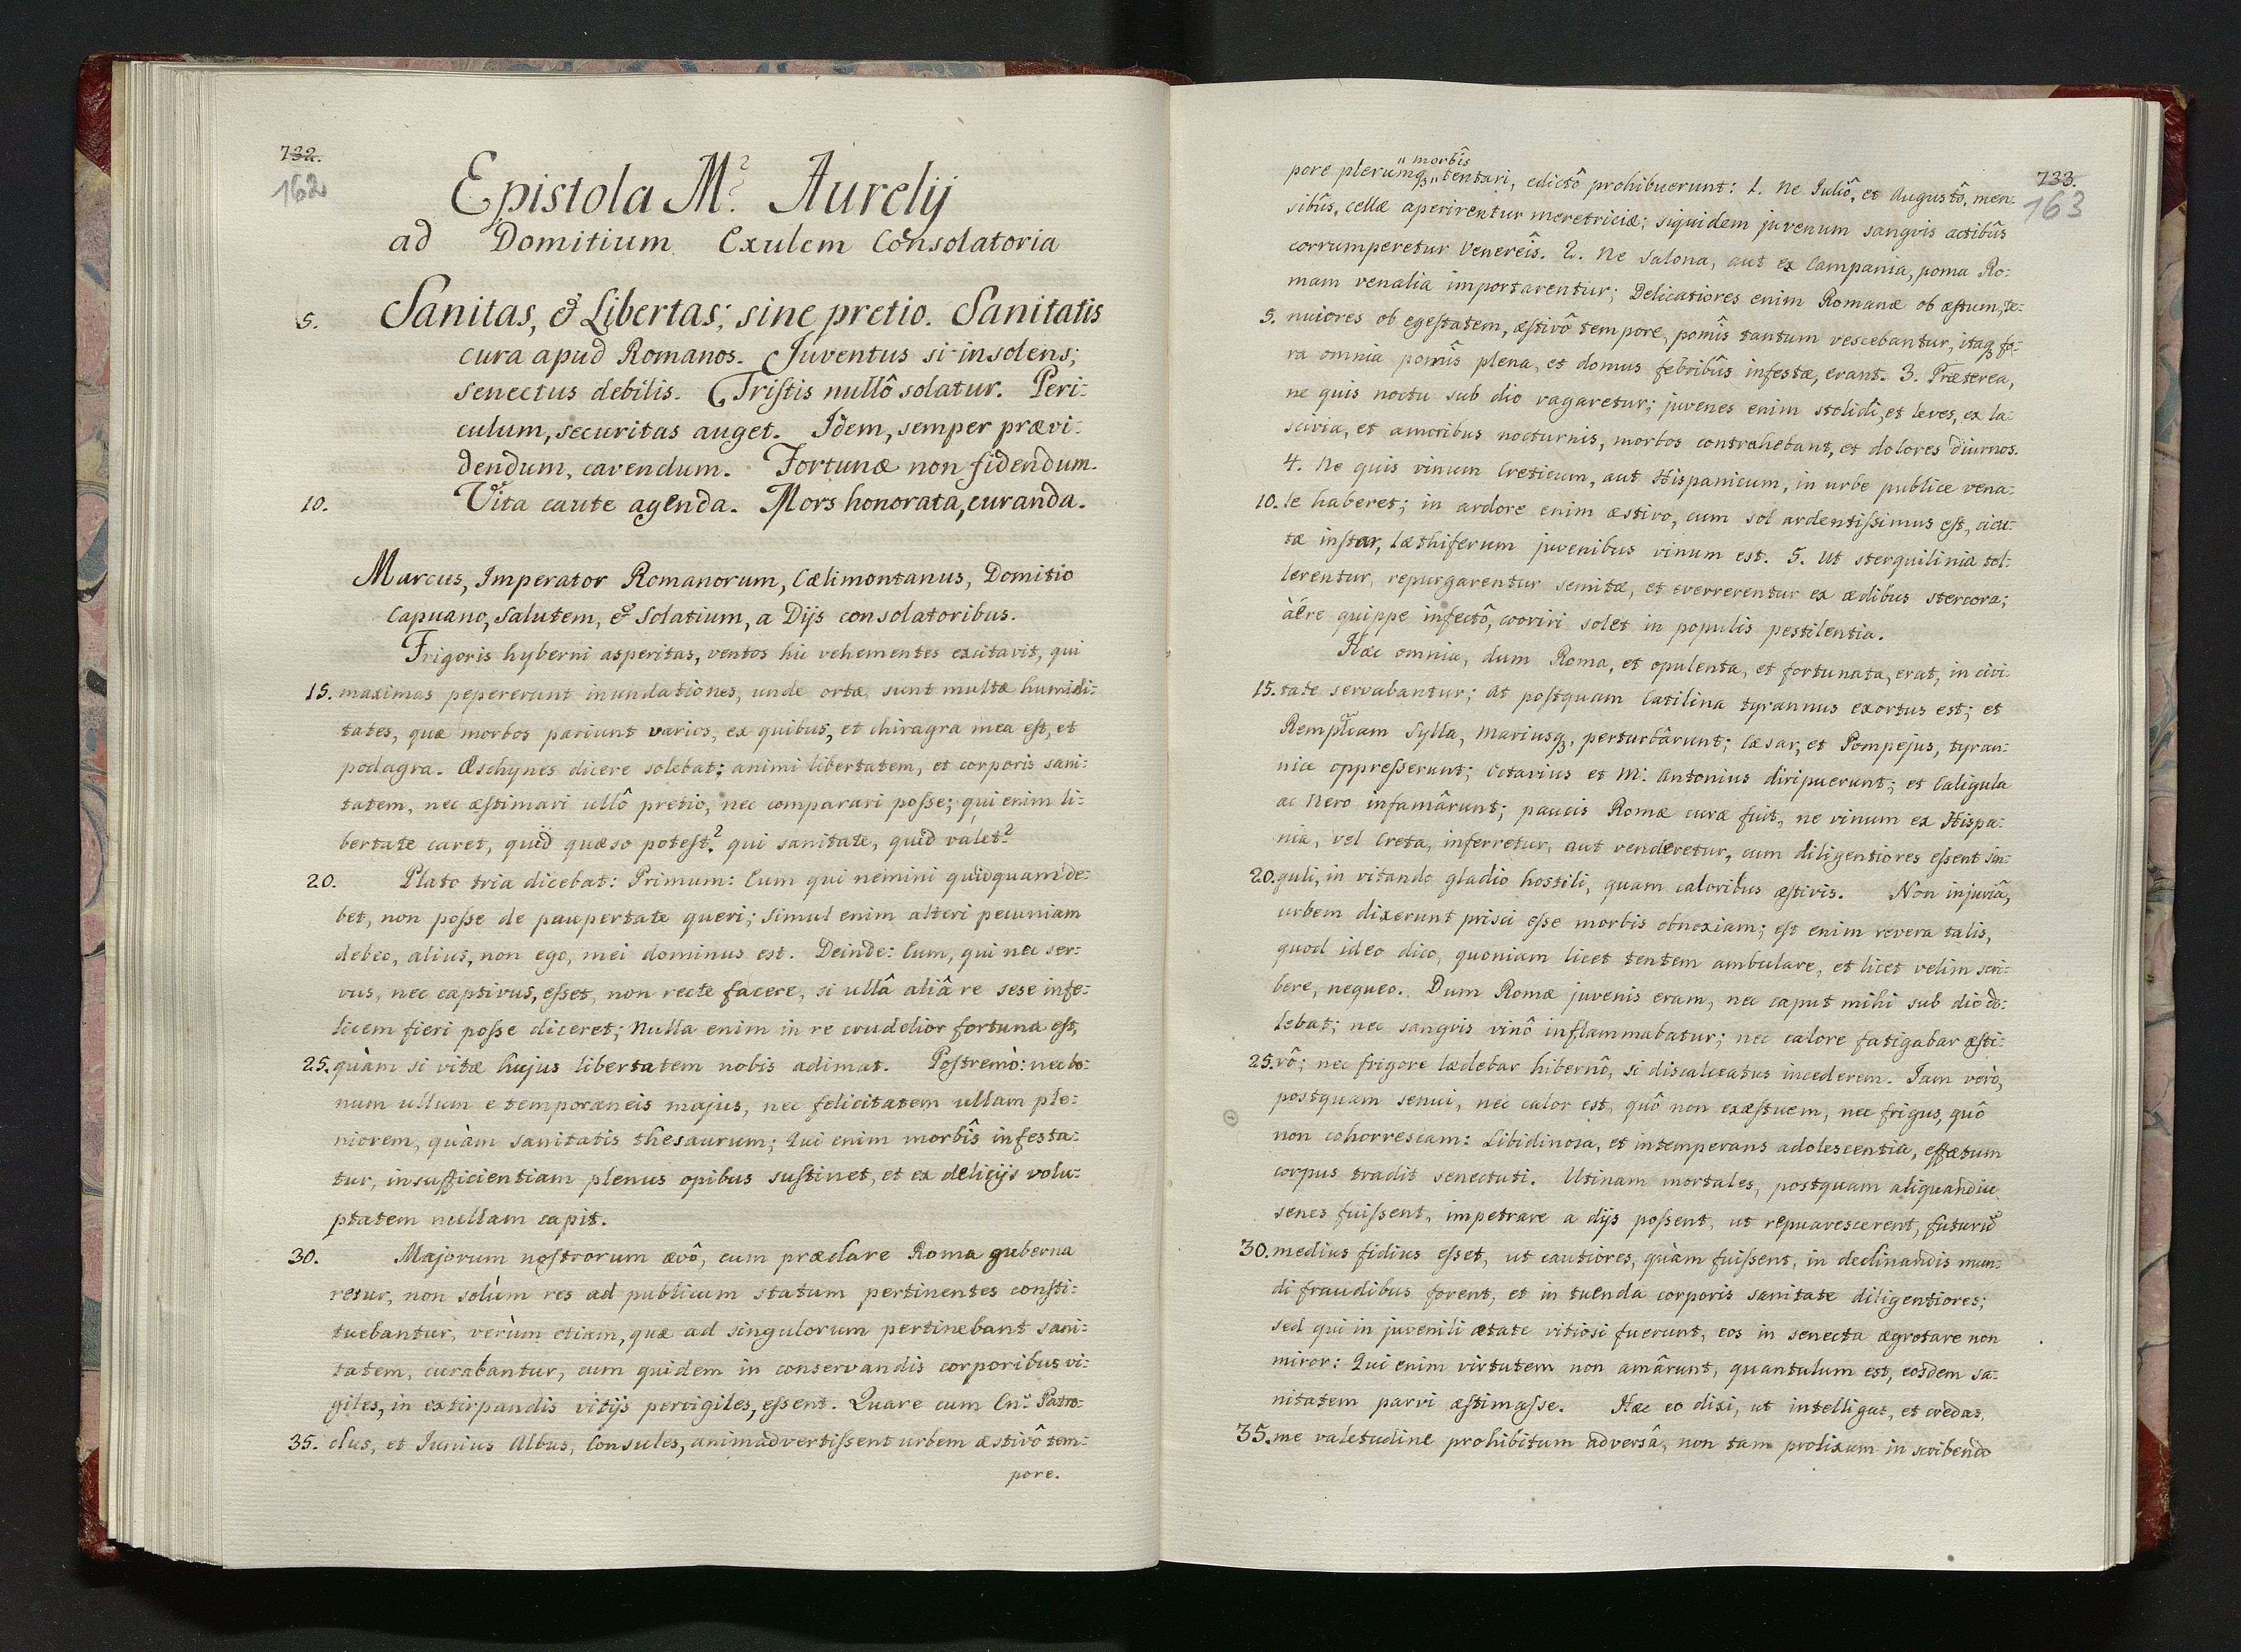 732.
162
Epistola M.? Aurelij
ad Domitium Exulem Consolatoria
5. Sanitas, & Libertas; sine pretio. Sanitatis
cura apud Romanos. Juventus si insolens;
senectus debilis. Tristis nullô solatur. Peri:
culum, securitas auget. Idem, semper prævi:
dendum, cavendum. Fortunæ non fidendum.
10. Vita caute agenda. Mors honorata, curanda.
Marcus, Imperator Romanorum, Cælimontanus, Domitio
Capuano, Salutem, & Solatium, a Dijs consolatoribus.
Frigoris hyberni asperitas, ventos hic vehementes excitavit, qui
15. maximas pepererunt inundationes, unde ortæ sunt multæ humidi:
tates, quæ morbos pariunt varios, ex quibus, et chiragra mea est, et
podagra. Æschynes dicere solebat; animi libertatem, et corporis sani:
tatem, nec æstimari ullô pretio, nec comparari posse; qui enim li:
bertate caret, quid quæso potest? qui sanitate, quid valet?
20. Plato tria dicebat: Primum: Eum qui nemini quidquam de:
bet, non posse de paupertate queri; simul enim alteri pecuniam
debeo, alius, non ego, mei dominus est. Deinde: Eum, qui nec ser:
vus, nec captivus, esset, non recte facere, si ullâ aliâ re sese infe:
licem fieri posse diceret; Nulla enim in re crudelior fortuna est,
25. quàm si vitæ hujus libertatem nobis adimat. Postremò: nec bo:
num ullum e temporaneis majus, nec felicitatem ullam ple:
niorem, quàm sanitatis thesaurum; Qui enim morbîs infesta:
tur, insufficientiam plenus opibus sustinet, et ex delicijs volu:
ptatem nullam capit.
30. Majorum nostrorum ævô, cum præclare Roma guberna
retur, non solùm res ad publicum statum pertinentes consti:
tuebantur, verùm etiam, quæ ad singulorum pertinebant sani:
tatem, curabantur, cum quidem in conservandis corporibus vi:
giles, in extirpandis vitijs pervigiles, essent. Quare cum Cn: Patro:
35. clus, et Junius Albus, Consules, animadvertissent urbem æstivô tem:
pore.
733.
163
" morbîs
pore plerumq3 " tentari, edictô prohibuerunt: 1. Ne Juliô, et Augustô, men:
sibûs, cellæ aperirentur meretriciæ; siquidem juvenum sangvis actibûs
corrumperetur Venereîs. 2. Ne Salona, aut ex Campania, poma Ro:
mam venalia importarentur; Delicatiores enim Romanæ ob æstum, te:
5. nuiores ob egestatem, æstivô tempore, pomîs tantum vescebantur, itaq3 fo:
ra omnia pomîs plena, et domus febribûs infestæ, erant. 3. Præterea,
ne quis noctu sub dio vagaretur; juvenes enim stolidi, et leves, ex la:
scivia, et amoribus nocturnis, morbos contrahebant, et dolores diurnos.
4. Ne quis vinum Creticum, aut Hispanicum, in urbe publice vena:
10. le haberet; in ardore enim æstivo, cum sol ardentissimus est, cicu:
tæ instar, læthiferum juvenibus vinum est. 5. Ut sterquilinia tol:
lerentur, repurgarentur semitæ, et everrerentur ex ædibus stercora;
àëre quippe infectô, cooriri solet in populis pestilentia.
Hæc omnia, dum Roma, et opulenta, et fortunata, erat, in civi:
15. tate servabantur; At postquam Catilina tyrannus exortus est; et
Rempl̃cam Sylla, Mariusq3, perturbârunt; Cæsar, et Pompejus, tyran:
nice oppresserunt; Octavius et M: Antonius diripuerunt; et Caligula
ac Nero infamârunt; paucis Romæ curæ fuit, ne vinum ex Hispa:
nia, vel Creta, inferretur, aut venderetur, cum diligentiores essent sin:
20. guli, in vitando gladio hostili, quam caloribus æstivis. Non injuriâ,
urbem dixerunt prisci esse morbis obnoxiam; est enim revera talis,
quod ideo dico, quoniam licet tentem ambulare, et licet velim scri:
bere, nequeo. Dum Romæ juvenis eram, nec caput mihi sub dio do:
lebat; nec sangvis vinô inflammabatur; nec calore fatigabar æsti:
25. vô; nec frigore lædebar hibernô, si discalceatus incederem. Jam verò,
postquam senui, nec calor est, quô non exæstuem, nec frigus, quô
non cohorrescam: Libidinosa, et intemperans adolescentia, effætum
corpus tradit senectuti. Utinam mortales, postquam aliquandiu
senes fuissent, impetrare a dijs possent, ut repuarescerent, futurũ
30. medius fidius esset, ut cautiores, quàm fuissent, in declinandis mun:
di fraudibus forent, et in tuenda corporis sanitate diligentiores;
sed qui in juvenili ætate vitiosi fuerunt, eos in senecta ægrotare non
miror: Qui enim virtutem non amârunt, quantulum est, eosdem sa:
nitatem parvi æstimasse. Hæc eo dixi, ut intelligas, et credas,
35. me valetudine prohibitum adversâ, non tam prolixum in scribendo